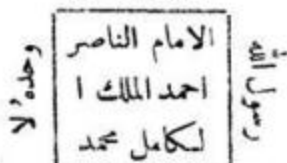 الامام الناصر
احمد الملك ا
لكامل محمد
رسول الله
وحده لا